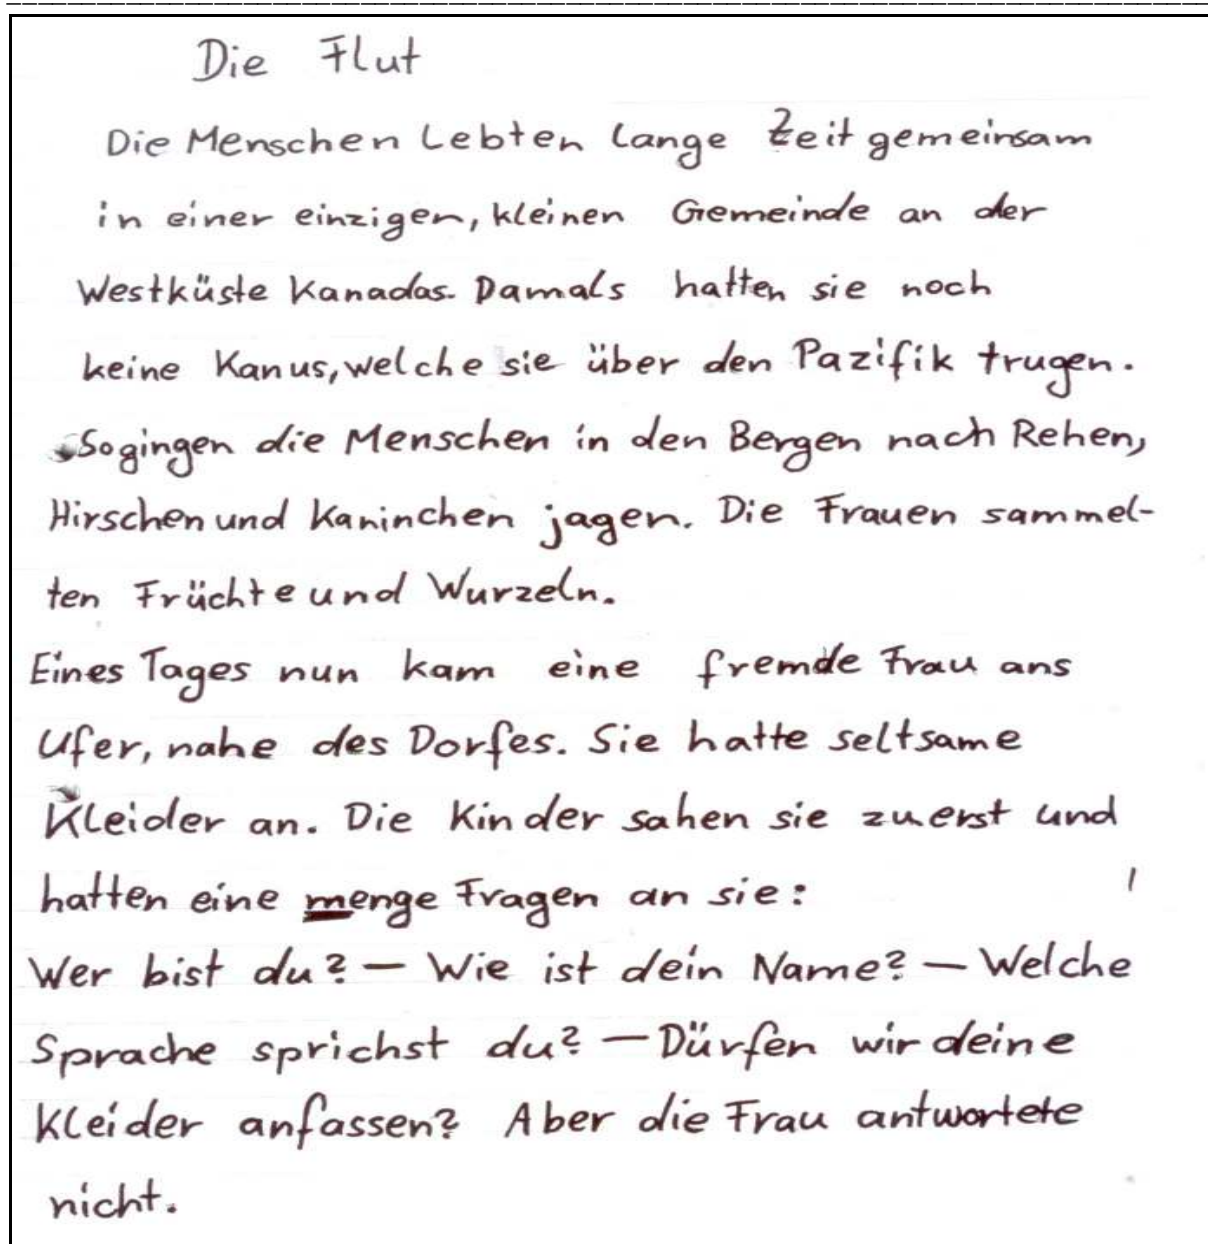 Die Flut
Die Menschen Lebten lange Zeit gemeinsam
in einer einzigen, kleinen Gemeinde an der
Westküste Kanadas. Damals hatten sie noch
keine Kanus, welche sie über den Pazifik trugen.
So gingen die Menschen in den Bergen nach Rehen,
Hirschen und Kaninchen jagen. Die Frauen sammel-
ten Früchte und Wurzeln.
Eines Tages nun kam eine fremde Frau ans
Ufer, nahe des Dorfes. Sie hatte seltsame
Kleider an. Die Kinder sahen sie zuerst und
hatten eine menge Fragen an sie:
Wer bist du? – Wie ist dein Name? – Welche
Sprache sprichst du? – Dürfen wir deine
Kleider anfassen? Aber die Frau antwortete
nicht.